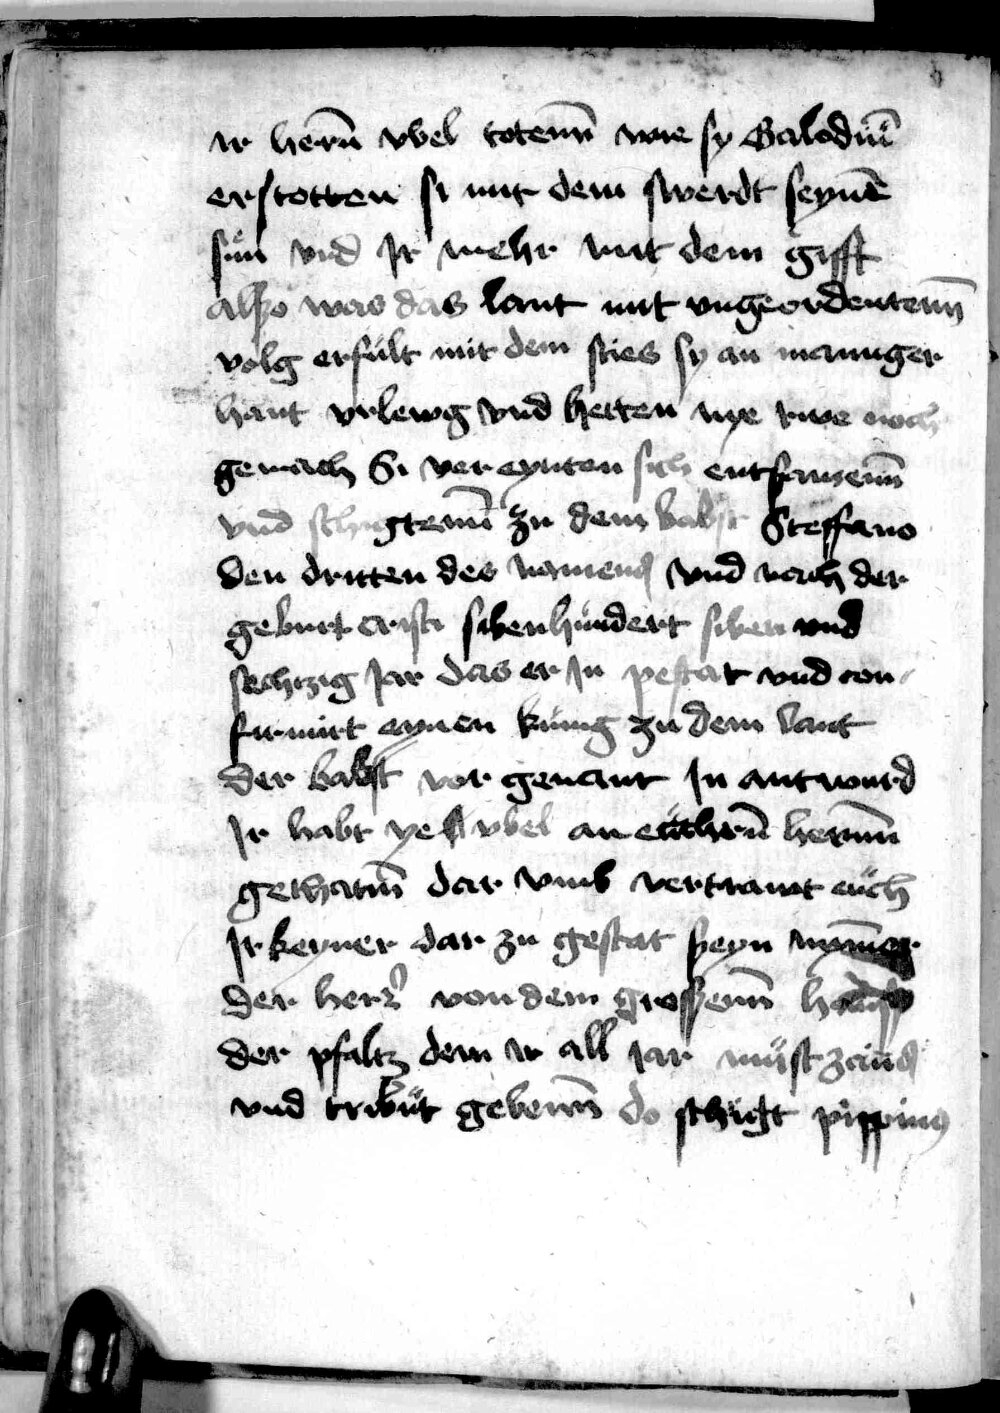 ir herrn vbel totenn wie sy Galodiū
erstotten si mit dem swerdt seynē
sun vnd Ir mehr mit dem gifft
also was das lant mit vngeordentenn
volg erfült mit dem sties sy an maniger
hant vrlewg vnd hetten nye rwe noch
gemach Si vereynten sich entsamenn
vnd schigtenn zu dem babst Steffano
den dritten des namens vnd nach der
geburt cristi sibenhundert siben vnd
sechtzig Jar das er In pestat vnd con
firmirt eynen künig zu dem lant
der babst vor genant In antwurd
Ir habt ye vbel an ewchrn herrnn
gethatnn dar vmb vertrawt euch
Ir keyner dar zu gestat seyn nymmer
der herr von dem grossenn
der pfaltz dem ir all Jar must zinß
vnd tribut gebenn do schigt pippinus